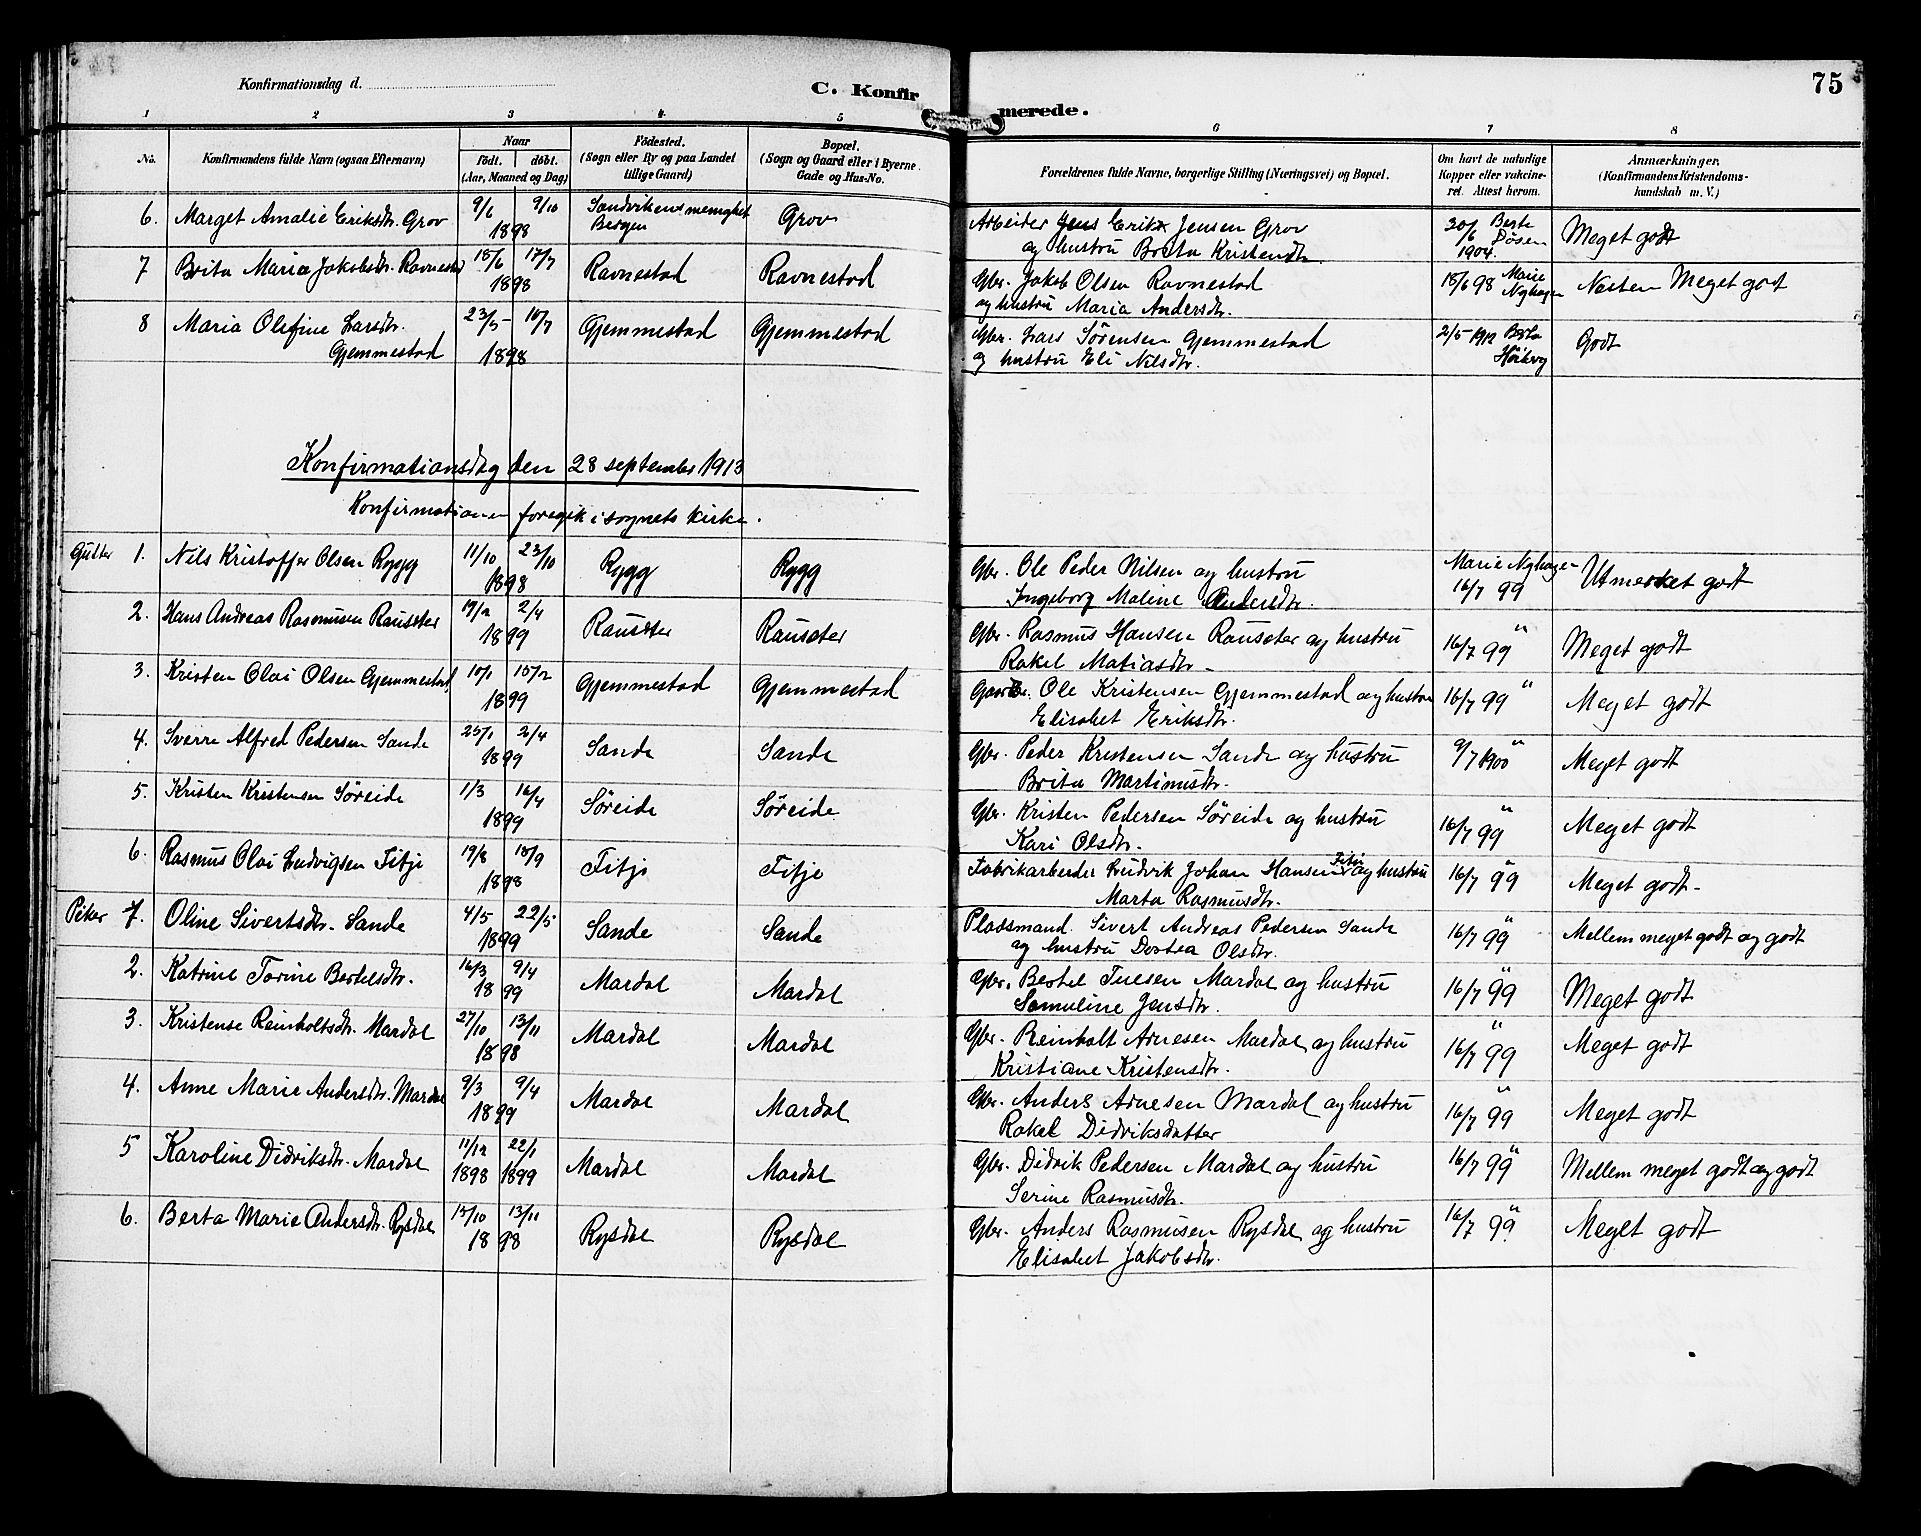 Konfirmationsdag d.
C. Konfir
merede.
75
1 2 3 4 5 6 7 8
No.
Konfirmandens fulde Navn (ogsaa Efternavn)
Naar
födt. döbt.
(Aar, Maaned og Dag)
Födested.
(Sogn eller By og paa Landet
tillige Gaard)
Bopæl.
(Sogn og Gaard eller i Byerne
Gade og Hus-No.
Forældrenes fulde Navne, borgerlige Stilling (Næringsvei) og Bopæl.
Om havt de naturlige
Kopper eller vakcine-
ret. Attest herom.
Anmærkninger.
(Konfirmandens Kristendoms-
kundskab m. V.)
6. Marget Amalie Eriksdtr. Grov 9/6 9/10 Sandvikens menighet Grov Arbeider Jens Erik Jensen Grov 30/6 Berte Meget godt
1898 Bergen og hustru Brita Kristensdtr. 1904. Døsen
7 Brita Maria Jakobsdtr. Ravnestad 18/6 17/7 Ravnestad Ravnestad Gbr. Jakob Olsen Ravnestad 18/6 98 Marie Nesten Meget godt
1898 og hustru Maria Andersdtr. Nyhagen
8 Maria Olefine Larsdtr. 23/5 10/7 Gjemmestad Gjemmestad Gbr. Lars Sørensen Gjemmestad 2/5 1912 Berta Godt
Gjemmestad 1898 og hustru Eli Nilsdtr.
Konfirmationsdag den 28 september 1913
Konfirmationen foregik i sognets kirke.
Gutter 1. Nils Kristoffer Olsen Rygg 11/10 23/10 Rygg Rygg Gbr. Ole Peder Nilsen og hustru Marie Nyhagen Utmerket godt
1898 Ingeborg Maline Andersdtr. 16/7 99
2. Hans Andreas Rasmusen Rauseter 19/2 2/4 Rauseter Rauseter Gbr. Rasmus Hansen Rauseter og hustru 16/7 99 " Meget godt
1899 Rakel Matiasdtr.
3. Kristen Olai Olsen Gjemmestad 10/1 15/2 Gjemmestad Gjemmestad Ole Kristensen Gjemmestad og hustru 16/7 99 " Meget godt
1899 Elisabet Eriksdtr.
4. Sverre Alfred Pedersen Sande 25/1 2/4 Sande Sande Gbr. Peder Kristensen Sande og hustru 9/7 1900 " Meget godt
1899 Brita Martinusdtr.
5. Kristen Kristensen Søreide 1/3 16/4 Søreide Søreide Gbr. Kristen Pedersen Søreide og hustru 16/7 99 " Meget godt
1899 Kari Olsdtr.
6. Rasmus Olai Ludvigsen Fitje 19/8 18/9 Fitje Fitje Fabrikarbeider Ludvik Johan Hansen Fitje og hustru 16/7 99 " Meget godt-
1898 Marta Rasmusdtr.
Piker 1. Oline Sivertsdtr. Sande 4/5 22/5 Sande Sande Plassmand. Sivert Andreas Pedersen Sande 16/7 99 " Mellem meget godt og godt
1899 og hustru Dortea Olsdtr.
2. Katrine Torine Bertelsdtr. 16/3 9/4 Mardal Mardal Gbr. Bertel Tuesen Mardal og hustru 16/7 99 " Meget godt
1899 Samuline Jensdtr.
3. Kristense Reinholtsdtr. Mardal 27/10 13/11 Mardal Mardal Gbr. Reinholt Arnesen Mardal og hustru 16/7 99 " Meget godt
1898 Kristiane Kristensdtr.
4. Anne Marie Andersdtr. Mardal 9/3 9/4 Mardal Mardal Gbr. Anders Arnesen Mardal og hustru 16/7 99 " Meget godt
1899 Rakel Didriksdatter
5 Karoline Didriksdtr. Mardal 11/12 22/1 Mardal Mardal Gbr. Didrik Pedersen Mardal og hustru 16/7 99 " Mellem meget godt og godt
1898 1899 Serine Rasmusdtr.
6. Berta Marie Andersdtr. Rysdal 15/10 13/11 Rysdal Rysdal Gbr. Anders Rasmusen Rysdal og hustru 16/7 99 " Meget godt
1898 Elisabet Jakobsdtr.